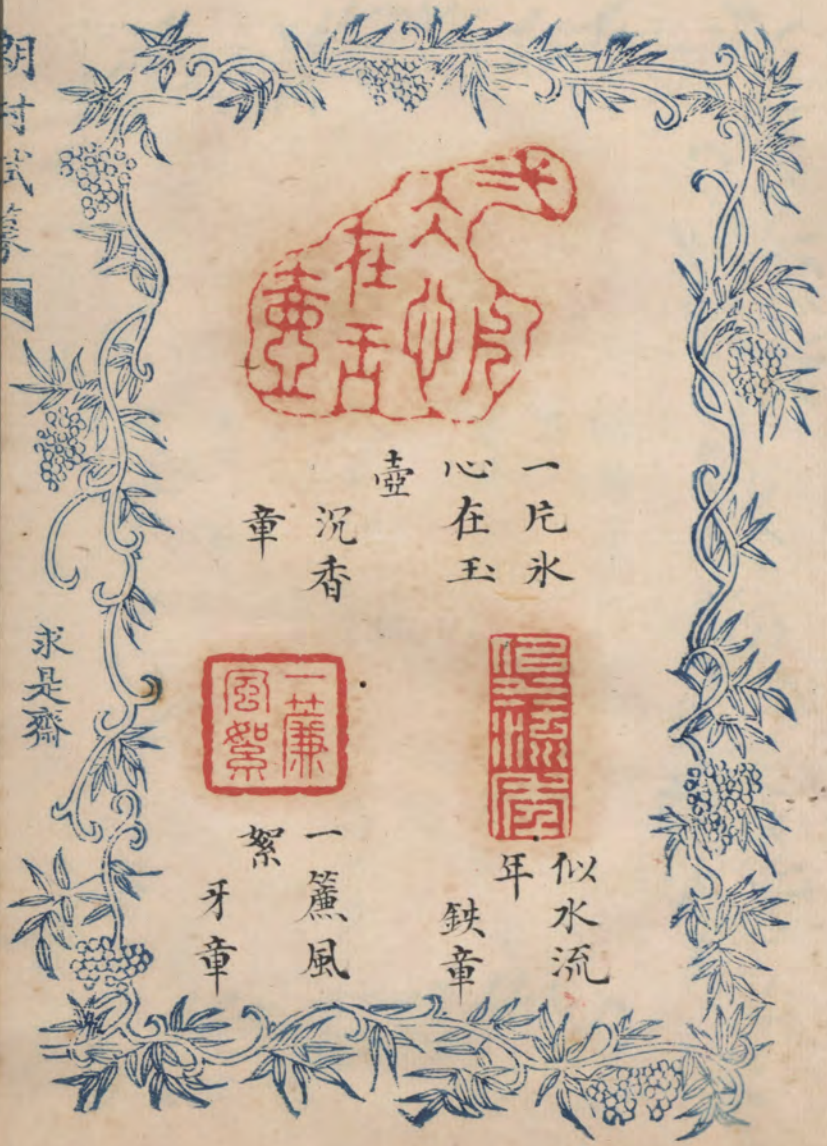 一片冰
心在玉
壺
沉香
章
似水流
年
鉄章
一簾風
絮
牙章
一簾
風絮
求是齋